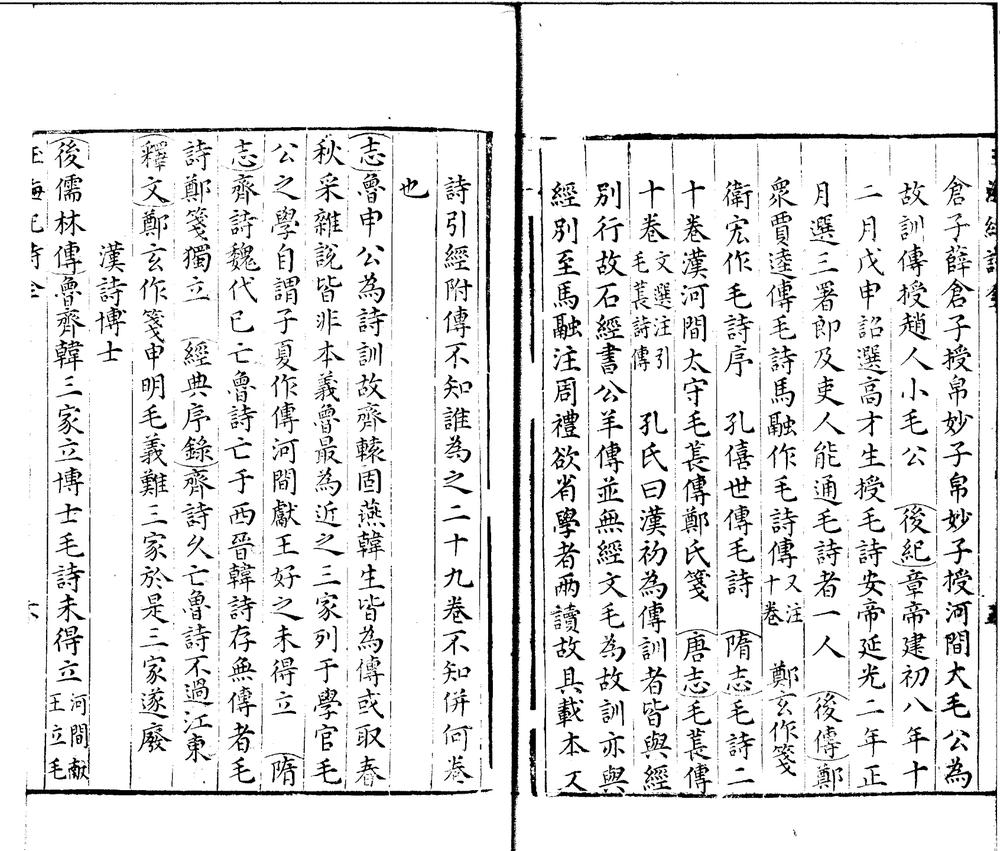 倉子薛倉子授帛妙子帛妙子授河間大毛公為
故訓傳授趙人小毛公　後紀章帝建初八年十
二月戊申詔選高才生授毛詩安帝延光二年正
月選三署郎及吏人能通毛詩者一人　後傳鄭
衆賈逵傳毛詩馬融作毛詩傳又注十卷　鄭玄作箋
衛宏作毛詩序　孔僖世傳毛詩　隋志毛詩二
十卷漢河間太守毛萇傳鄭氏箋　唐志毛萇傳
十卷文選注引毛萇詩傳　孔氏曰漢初為傳訓者皆與經
別行故石經書公羊傳並無經文毛為故訓亦與
經別至馬融注周禮欲省學者兩讀故具載本文
詩引經附傳不知誰為之二十九卷不知併何卷
也
志魯申公為詩訓故齊轅固燕韓生皆為傳或取春
秋采雜說皆非本義魯最為近之三家列于學官毛
公之學自謂子夏作傳河間獻王好之未得立　隋
志齊詩魏代已亡魯詩亡于西晉韓詩存無傳者毛
詩鄭箋獨立　經典序錄齊詩久亡魯詩不過江東
釋文鄭玄作箋申明毛義難三家於是三家遂廢
漢詩博士
後儒林傳魯齊韓三家立博士毛詩未得立河間獻王立毛